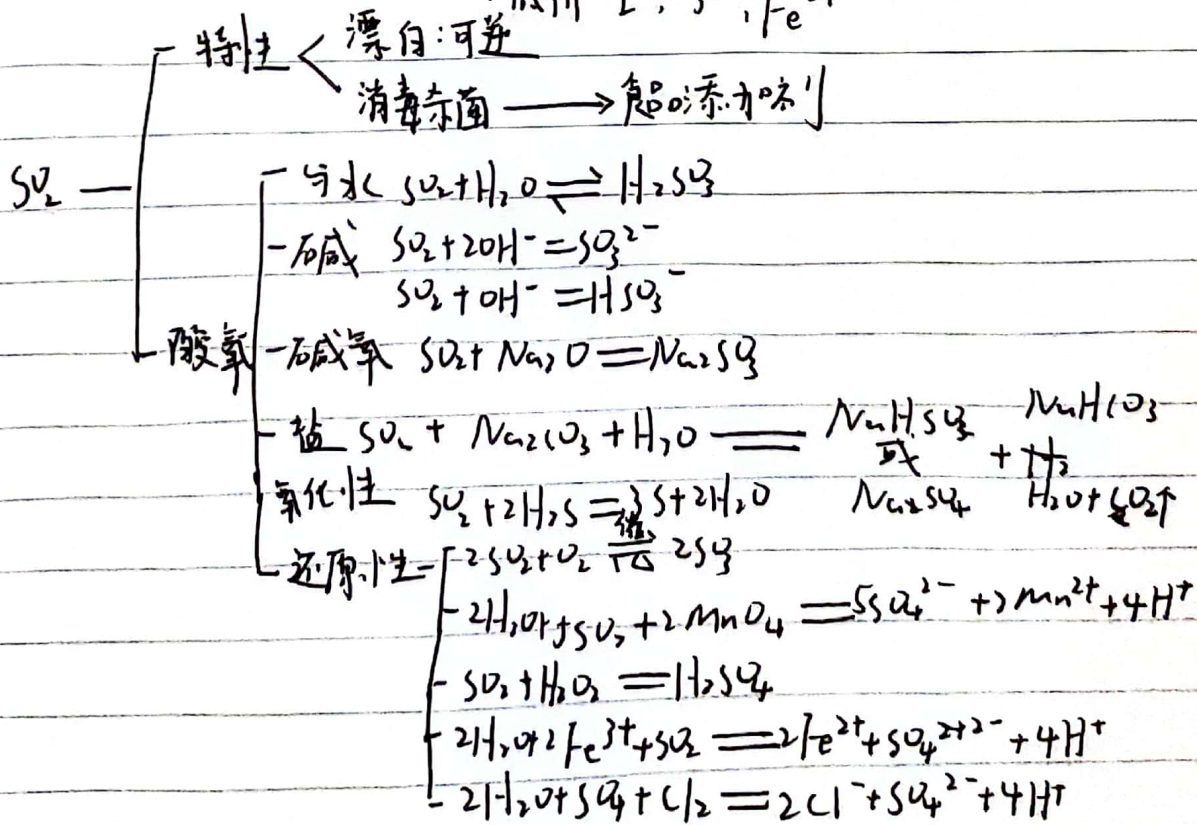 , Fe
特性 漂白:可逆
消毒杀菌 → 食品添加剂
SO₂
与水 SO₂+H₂O⇌H₂SO₃
碱 SO₂+2OH⁻=SO₃²⁻
SO₂+OH⁻=HSO₃⁻
酸氧
碱氧 SO₂+Na₂O=Na₂SO₃
盐 SO₂+Na₂CO₃+H₂O=NaHSO₃ 或 Na₂SO₄ + NaHCO₃ H₂O+CO₂↑
氧化性 SO₂+2H₂S=3S+2H₂O
还原性 2SO₂+O₂ 催 ⇌ △ 2SO₃
2H₂O+5SO₂+2MnO₄=5SO₄²⁻+2Mn²⁺+4H⁺
SO₂+H₂O₂=H₂SO₄
2H₂O+2Fe³⁺+SO₂=2Fe²⁺+SO₄²⁺²⁻+4H⁺
2H₂O+SO₄+Cl₂=2Cl⁻+SO₄²⁻+4H⁺